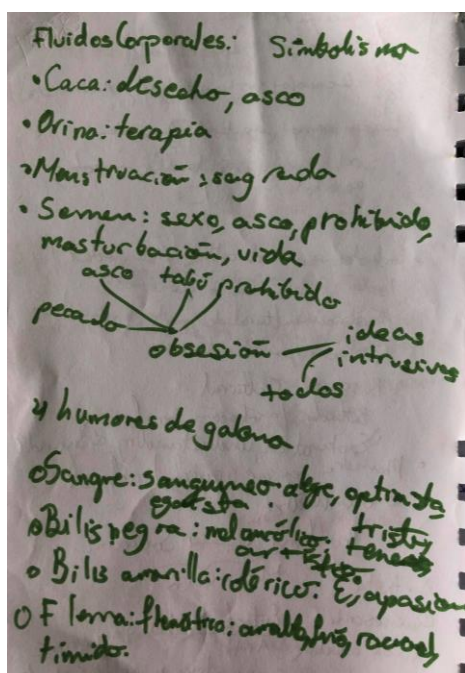 Fluidos Corporales: Simbolismo
• Caca: desecho, asco
• Orina: terapia
• Menstruación: sagrada
• Semen: sexo, asco, prohibido,
masturbación, vida
asco tabú prohibido
pecado
obsesión
ideas
intrusivas
todos
4 humores de galeno
Sangre: sanguyneo optimista
egoista
Bilis negra: melancólico. triste,
artista.
Bilis amarilla: colérico. E,
Flema: flemático: racional,
timido.